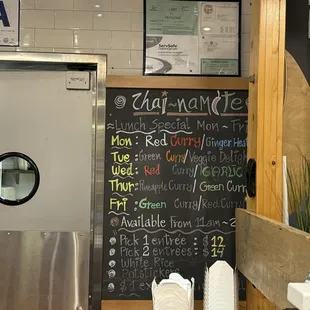 Thai~namite
ServSafe
Lunch Special Mon - Fri
Mon: Red Curry/Ginger
Tue: Green Curry/Veggie Delight
Wed: Red Curry/GARLIC
Thur: Pineapple Curry/Green Curry
Fri: Green Curry/Red Curry
Available From 11am ~
Pick 1 entree: $12
Pick 2 entrees: $14
White Rice
Potstickers